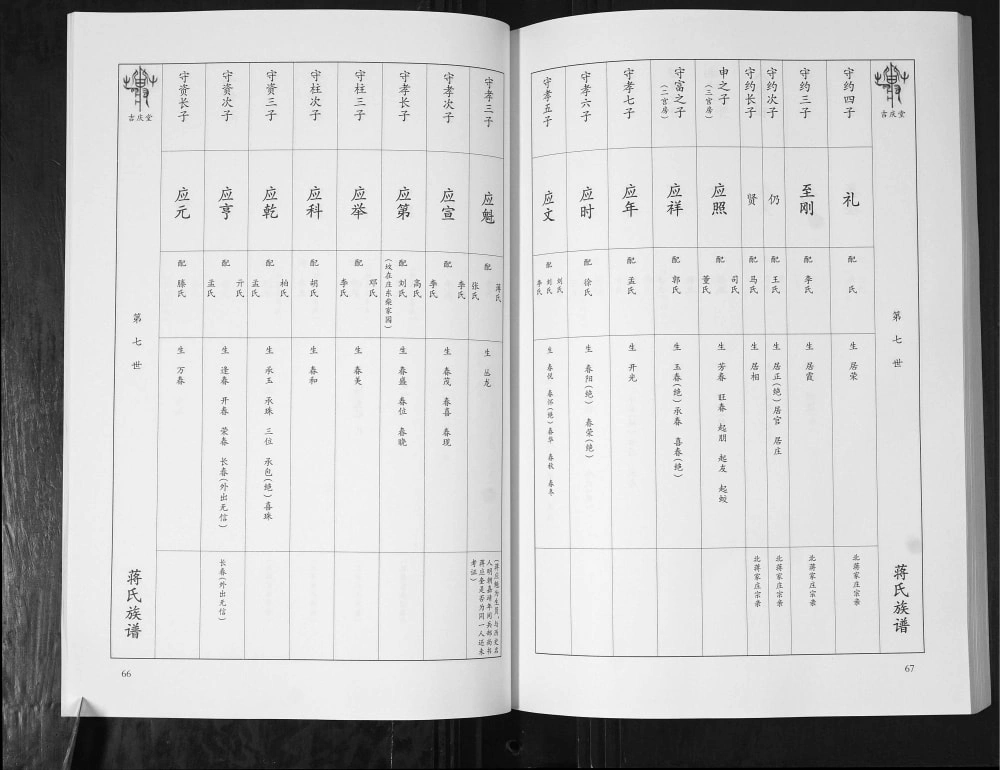 吉庆堂
第七世
蒋氏族谱
66
守资长子
应元
配
滕氏
生 万春
守资次子
应亨
配
孟氏
亓氏
生 逢春 开春 荣春 长春(外出无信)
长春(外出无信)
守资三子
应乾
配
孟氏
柏氏
生 承玉 承珠 三位 承包(绝)喜珠
守柱次子
应科
配
胡氏
生 春和
守柱三子
应举
配
李氏
邓氏
生 春美
守孝长子
应第
配
(坟在庄东柴家园)
刘氏
高氏
生 春盛 春位 春晓
守孝次子
应宣
配
李氏
李氏
生 春茂 春喜 春现
守孝三子
应魁
配
张氏
蒋氏
生 丛龙
(蒋应魁为生员,与历史名
人明朝嘉靖年间兵部尚书
蒋应奎是否为同一人还未
考证)
守孝五子
应文
配
李氏
刘氏
刘氏
生 春悦 春怀(绝)春华 春秋 春冬
守孝六子
应时
配
徐氏
生 春阳(绝) 春荣(绝)
守孝七子
应年
配
孟氏
生 开光
守富之子
(二宫房)
应祥
配
郭氏
生 玉春(绝)承春 喜春(绝)
申之子
(三宫房)
应照
配
董氏
司氏
生 芳春 旺春 起朋 起友 起蛟
守约长子
贤
配
马氏
生 居相
北蒋家庄宗亲
守约次子
仍
配
王氏
生 居正(绝)居官 居庄
北蒋家庄宗亲
守约三子
至刚
配
李氏
生 居霞
北蒋家庄宗亲
守约四子
礼
配
氏
生 居荣
北蒋家庄宗亲
吉庆堂
第七世
蒋氏族谱
67